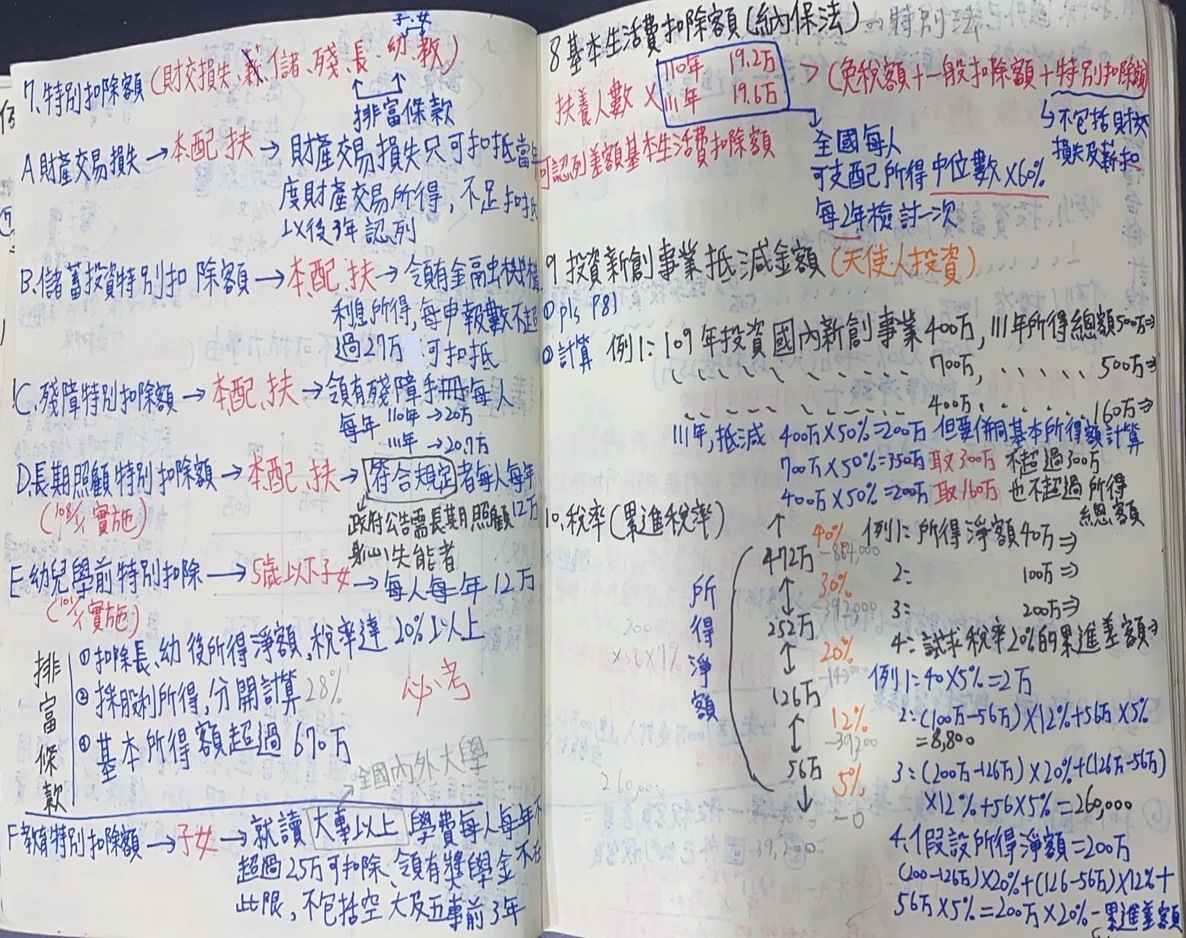 子.女
7.特別扣除額(財交損失、薪、儲、殘、長、幼、教)
排富條款
A.財產交易損失→本配扶→財產交易損失只可扣抵當年
度財產交易所得,不足扣抵
以後3年認列
B.儲蓄投資特別扣除額→本、配、扶→領有金融機構
利息所得,每申報數不超
過27万 可扣抵
C.殘障特別扣除額→本配、扶→領有殘障手冊每人
每年 110年→20万
111年→20.7万
D.長期照顧特別扣除額→本配、扶→符合規定者每人每年
12万
(108/1/1實施)
政府公告需長期照顧
身心失能者
E.幼兒學前特別扣除→5歲以下子女→每人每年12万
(101/1/1實施)
排富條款
①扣除長、幼後所得淨額,稅率達20%以上
②採股利所得,分開計算28%
③基本所得額超過670万
必考
全國內外大學
F教育特別扣除額→子女→就讀大專以上學費每人每年不
超過2.5万可扣除、領有獎學金不在
此限,不包括空大及五專前3年
8基本生活費扣除額(納保法)→特別法
扶養人數×110年 19.2万
111年 19.6万
>(免稅額+一般扣除額+特別扣除額)
↳不包括財交
損失及薪扣
可認列差額基本生活費扣除額
全國每人
可支配所得中位數×60%
每2年檢討一次
9.投資新創事業抵減金額(天使人投資)
①pls P81
②計算 例1:109年投資國內新創事業400万,111年所得總額500万⇒
、、、、、、、、、700万,、、、、、500万⇒
、、、、、、、、、400万,、、、、、160万⇒
111年,抵減 400万×50%=200万 但要併同基本所得額計算
700万×50%=350万取300万 不超過300万
400万×50%=200万取160万 也不超過所得
總額
10.稅率(累進稅率)
所得淨額
40%
-884,000
472万
30%
-392000
252万
20%
126万
12%
-39200
56万
5%
-0
例1:所得淨額40万⇒
2: 100万⇒
3: 200万⇒
4:試求稅率20%的累進差額⇒
例1:40×5%=2万
2:(100万-56万)×12%+56万×5%
=8,800
3:(200万-126万)×20%+(126万-56万)
×12%+56×5%=260,000
4.假設所得淨額=200万
(200-126万)×20%+(126-56万)×12%+
56万×5%=200万×20%-累進差額